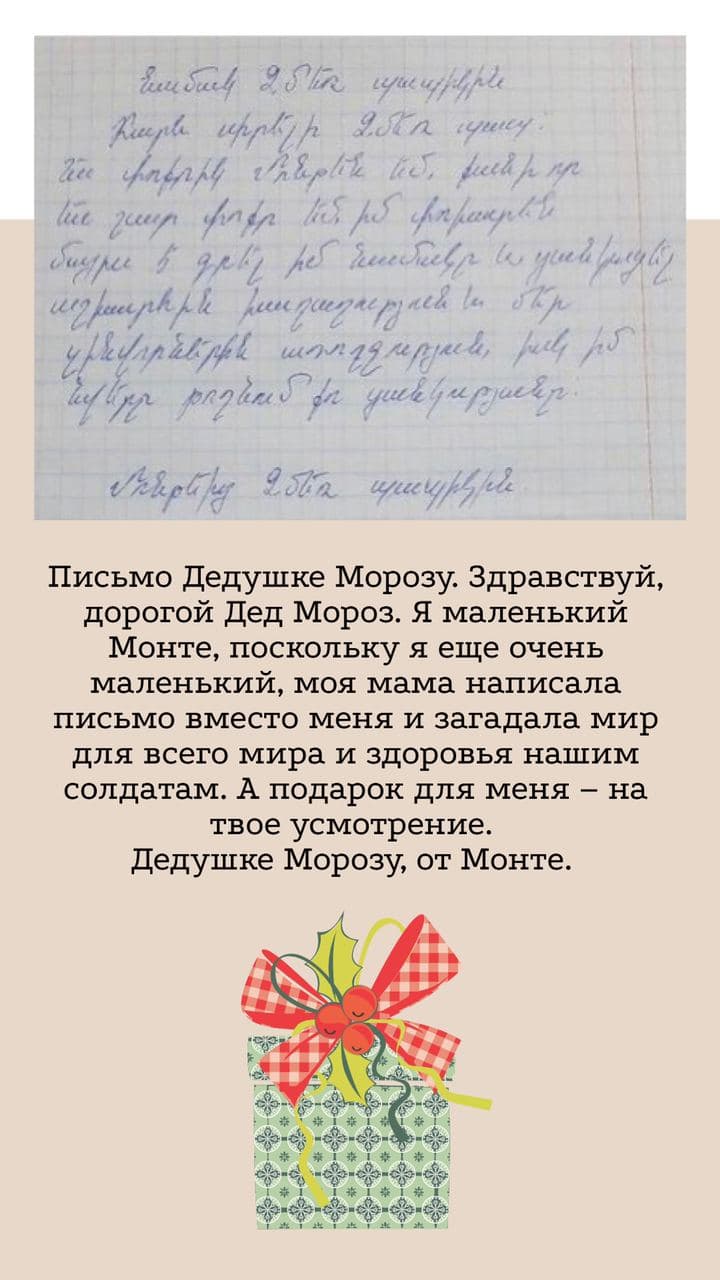 Նամակ Ձմեռ պապիկին
Բարև սիրելի Ձմեռ պապ:
Ես փոքրիկ Մոնթեն եմ, քանի որ
ես շատ փոքր եմ, իմ փոխարեն
մայրս է գրել իմ նամակը և ցանկացել
աշխարհին խաղաղություն և մեր
զինվորներին առողջություն, իսկ իմ
նվերը թողնում եմ ցանկությանդ:
Մոնթեից Ձմեռ պապիկին
Письмо Дедушке Морозу. Здравствуй,
дорогой Дед Мороз. Я маленький
Монте, поскольку я еще очень
маленький, моя мама написала
письмо вместо меня и загадала мир
для всего мира и здоровья нашим
солдатам. А подарок для меня – на
твое усмотрение.
Дедушке Морозу, от Монте.